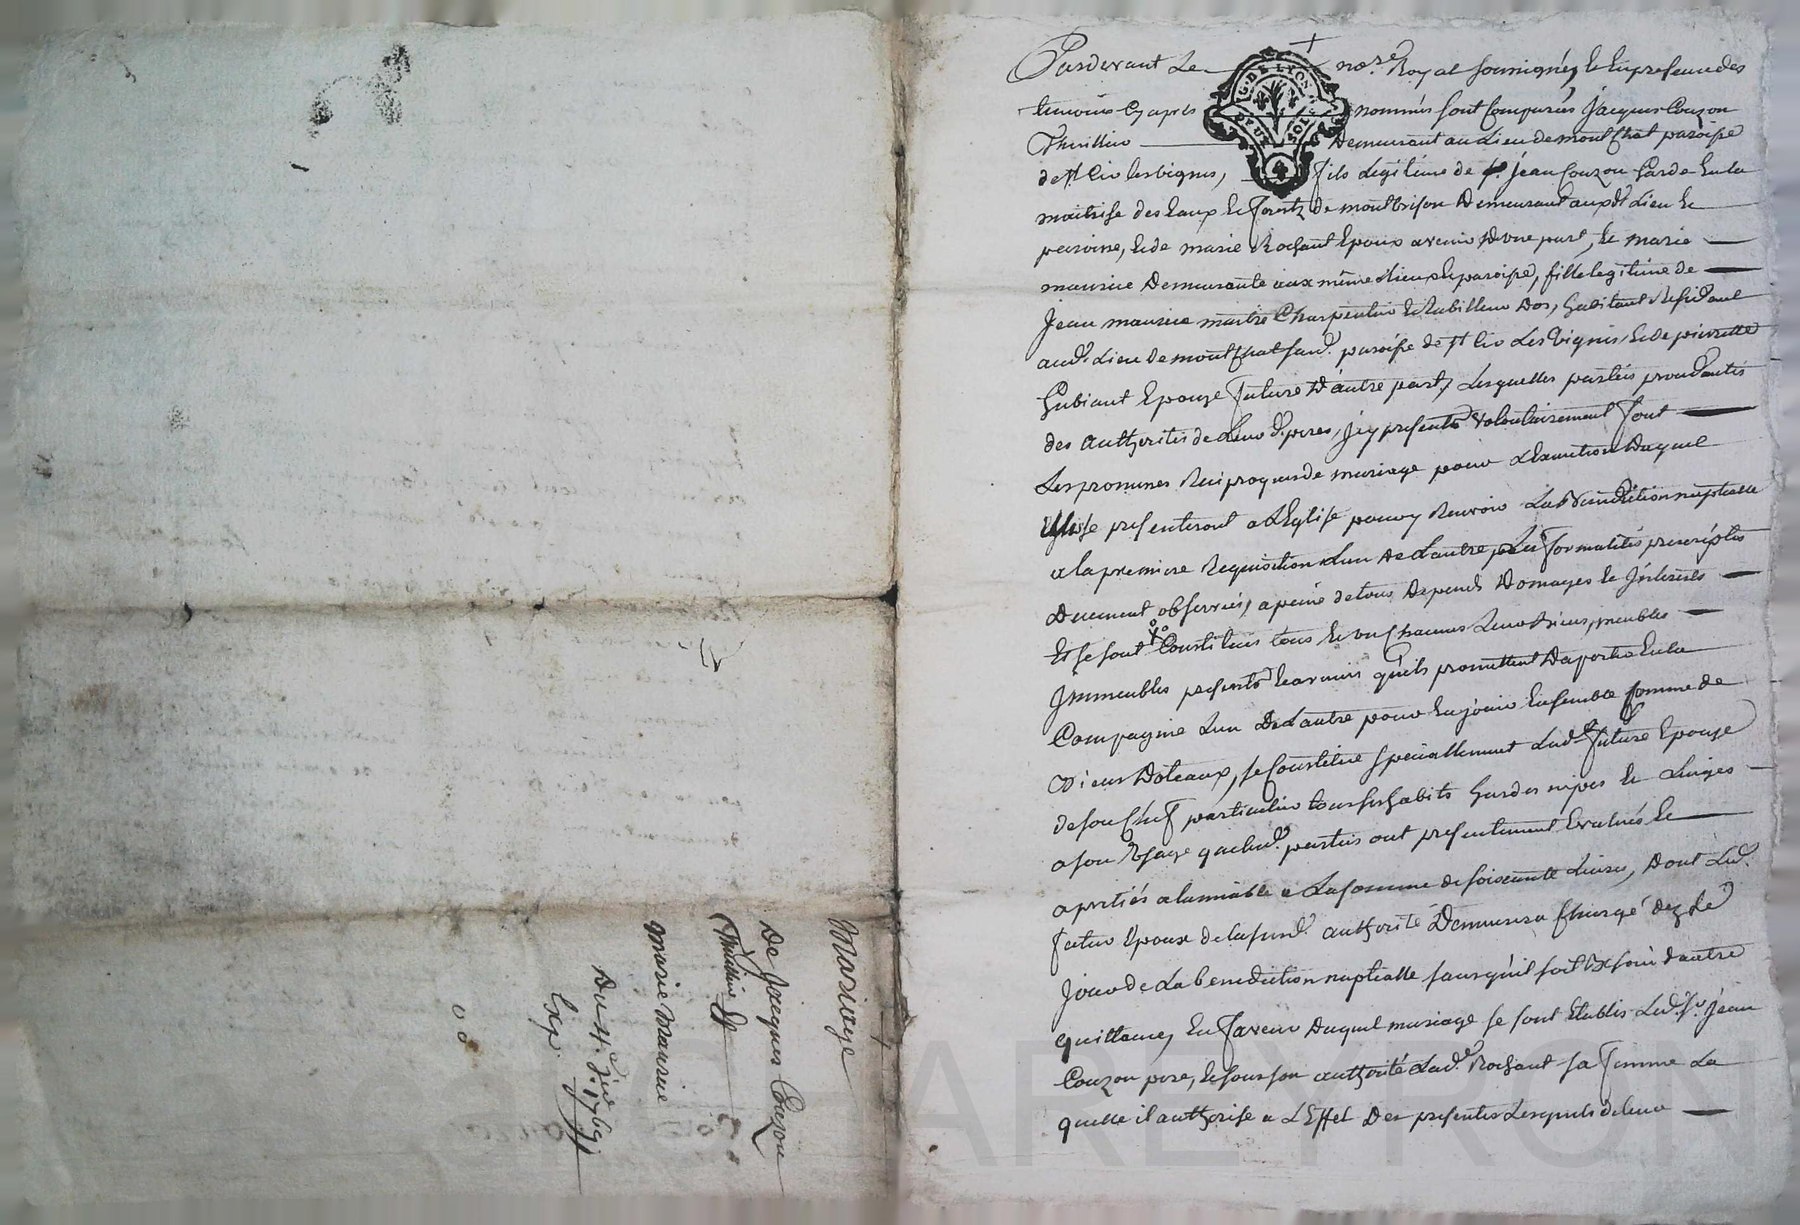 Mariage
De Jacques Couzon
Thuillier &
marie maurice
Du 4e. Jer. 1769
Exp.
Pardevant Le no.re Royal soussigné, & En presence des
temoins Cy apres nommés sont Comparus Jacques Couzon
Thuillier Demeurant au Lieu de montchat paroisse
de st Cir les vignes, fils Legitime de sr. Jean Couzon Garde En la
maitrise des Eaux & forests de montbrison Demeurant auxdt Lieu &
paroisse, & de marie Rochant Epoux avenir D'une part, & marie
maurice Demeurante aux même Lieu & paroisse, fille legitime de
Jean maurice maitre Charpentier & Rabilleur Dos, habitant Residant
aud. Lieu de montchat sud. paroisse de st Cir Les Vignes, & de pierrette
Gubiant Epouze future D'autre part, Lesquelles parties procedantes
des authorités de Leurd. peres, icy presents volontairement font
Les promesses Reciproques de mariage pour L'Execution Duquel
Elles se presenteront a L'Eglise pour y Recevoir La Benediction nuptialle
a la premiere Requisition L'un De L'autre Les formalités prescriptes
Duement observées, a peine de tous Depends Domages & Interests
Et se sont Constitués tous & un Chacuns Leurs Biens, meubles
Immeubles presents & avenir qu'ils promettent D'aporter En la
Compagnie L'un De L'autre pour En jouir Ensemble Comme de
Biens Doteaux, se Constitue specialement Lad. future Epouze
de son Chef particulier tous ses habits hardes nipes & Linges
a son Usage que lesd. parties ont presentement Evalués &
apretiés a L'amiable a La somme de soixante Livres, Dont Led.
futur Epoux de la susd. authorité Demeurera Chargé dez Le
jour de La benediction nuptialle sans qu'il soit Besoin d'autre
quittance, En faveur Duquel mariage se sont Etablis Led. sr. Jean
Couzon pere, & sous son authorité Lad.e Rochant sa femme La
quelle il authorise a L'Effet Des presentes Lesquels de leur
G·DE LYON
DEUX SOLS
4
CHAREYRON